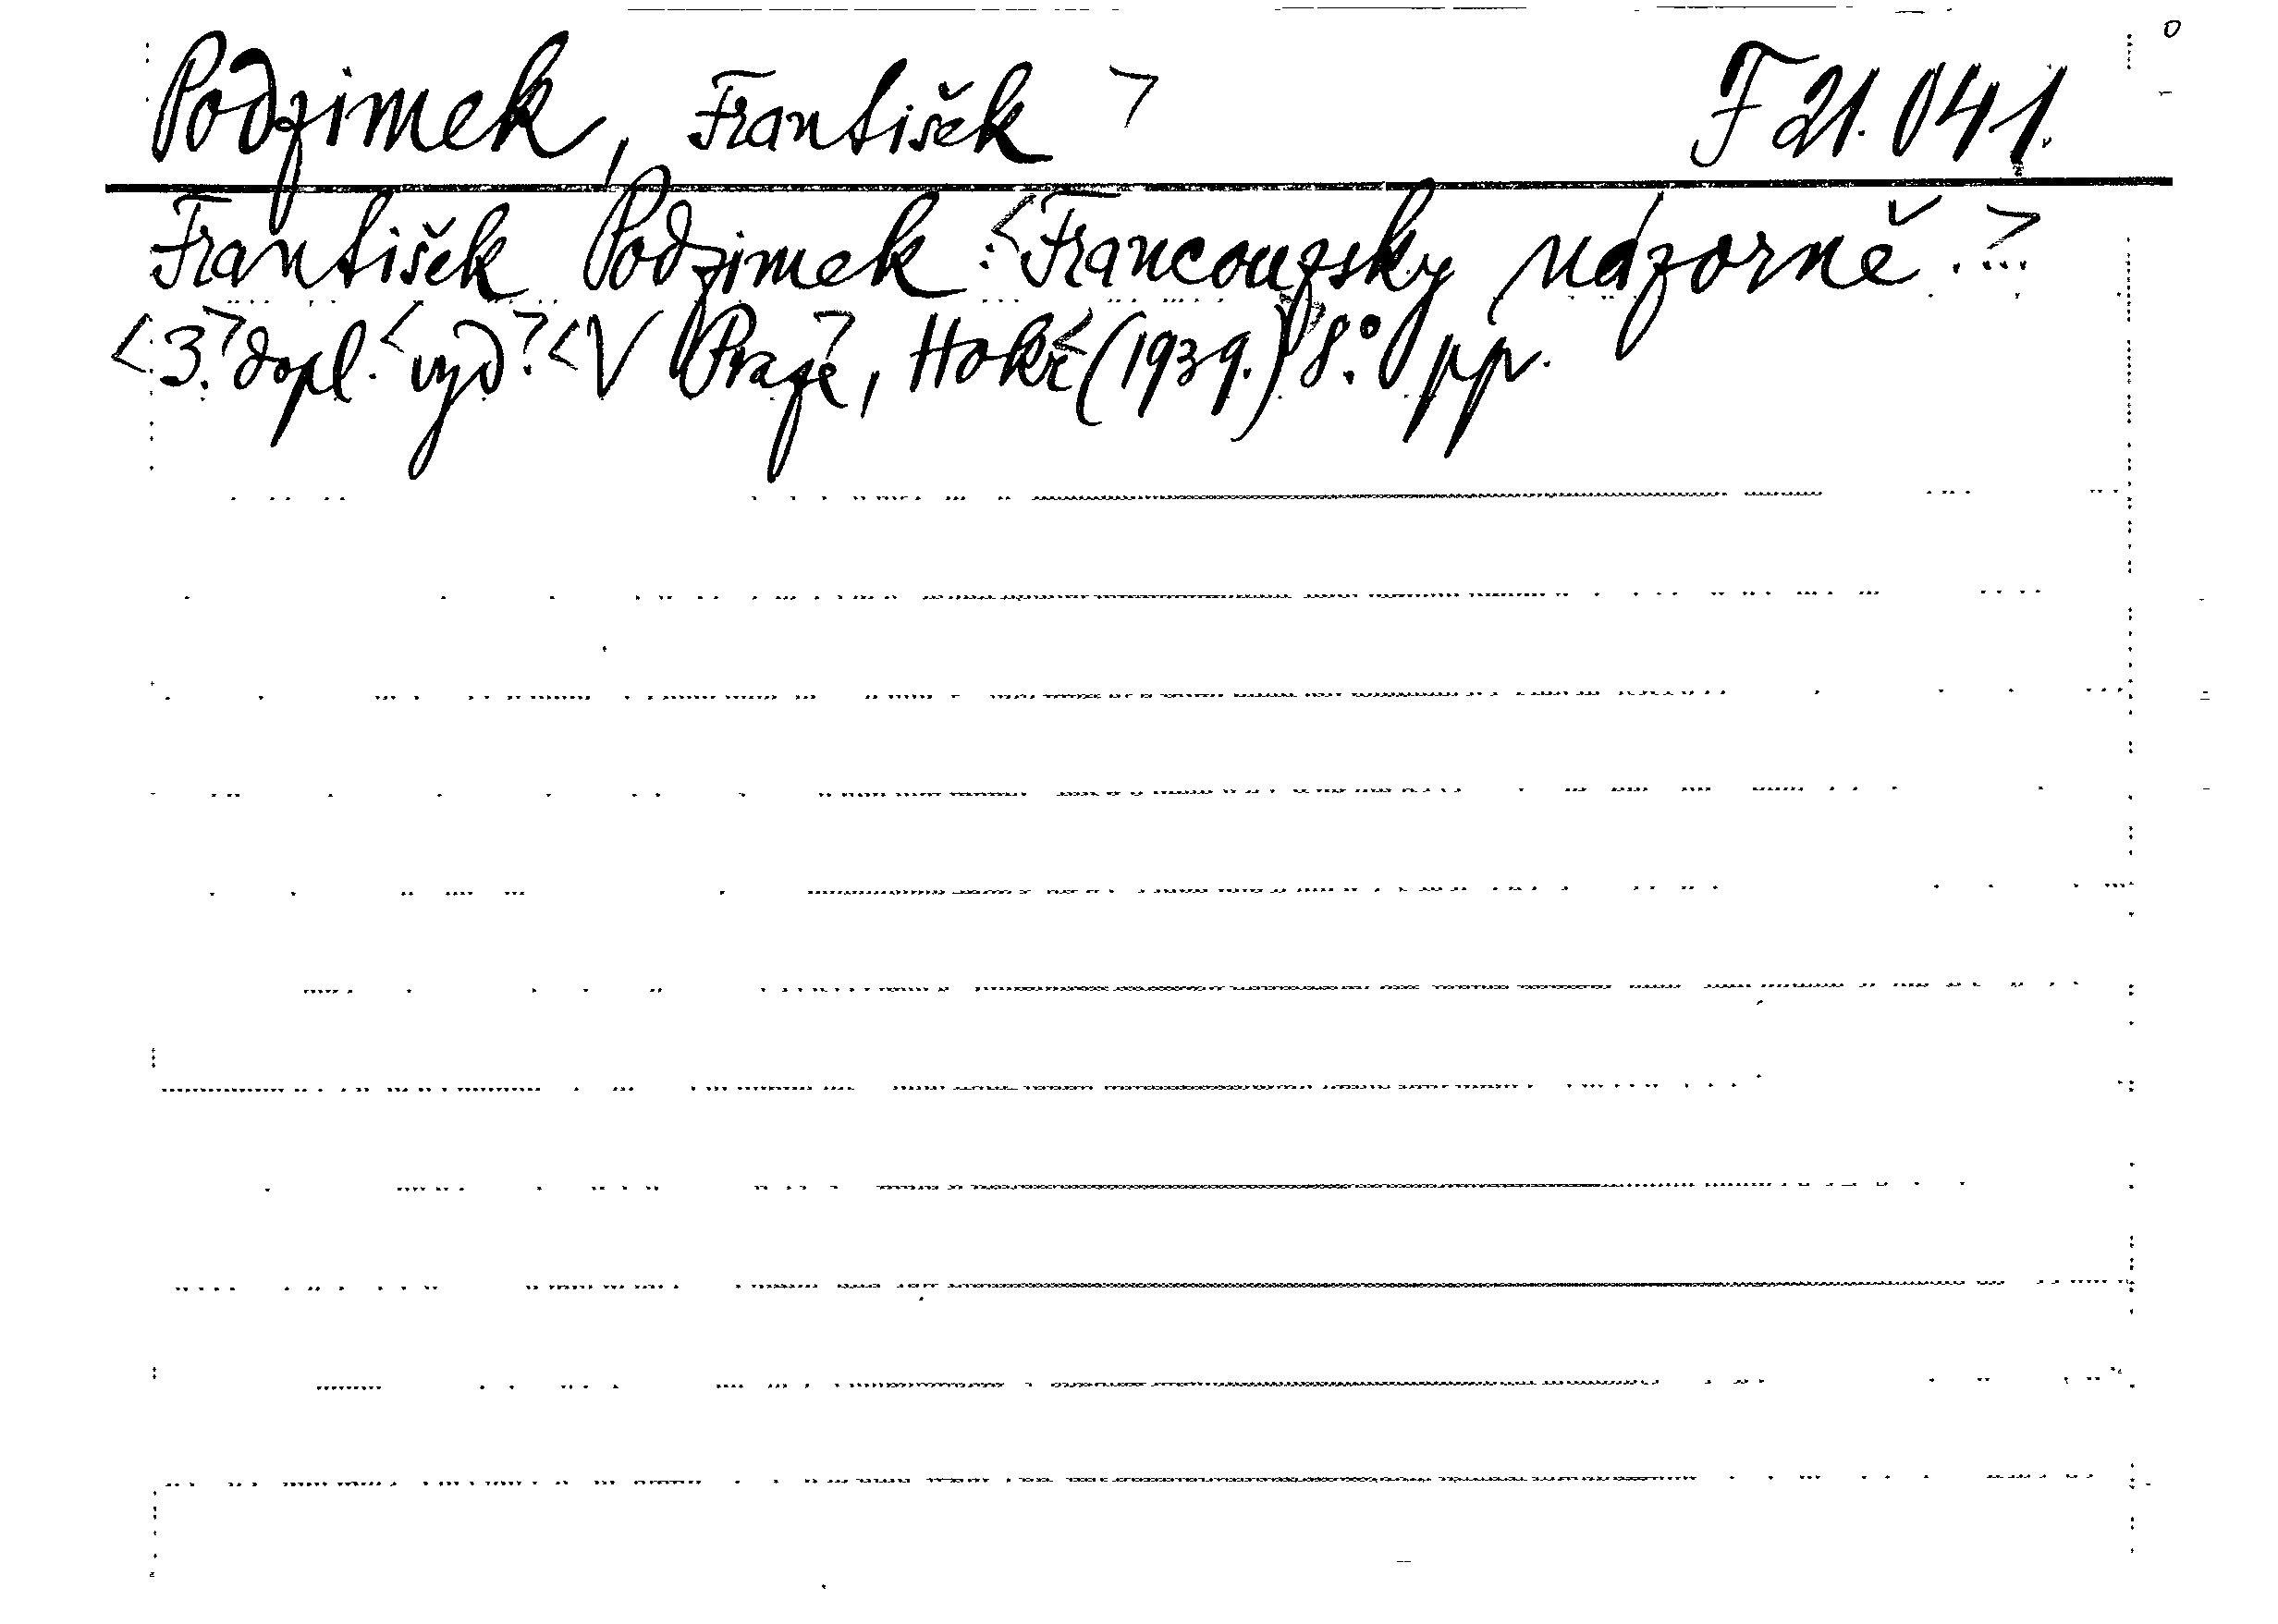 Podzimek, František > F 21.041.
František Podzimek: <Francouzsky názorně...>
<3.> dopl. <vyd.> <V Praze>, Hokr <(1939.)> 8.° pp.